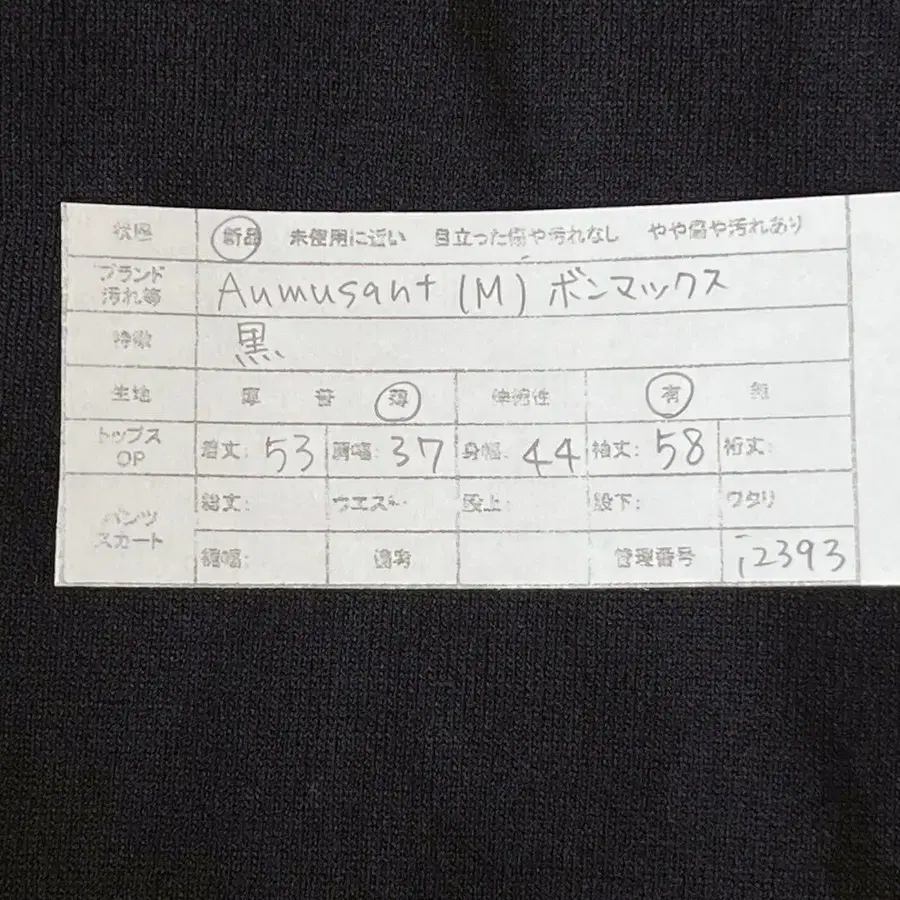 状態 新品 未使用に近い 目立った傷や汚れなし やや傷や汚れあり
ブランド
汚れ等
Aumusant (M) ボンマックス
特徴 黒
生地 厚 普 薄 伸縮性 有 無
トップス
OP
着丈: 53 肩幅: 37 身幅: 44 袖丈: 58 裄丈:
パンツ
スカート
総丈: ウエスト 股上: 股下: ワタリ
裾幅: 備考 管理番号 i2393